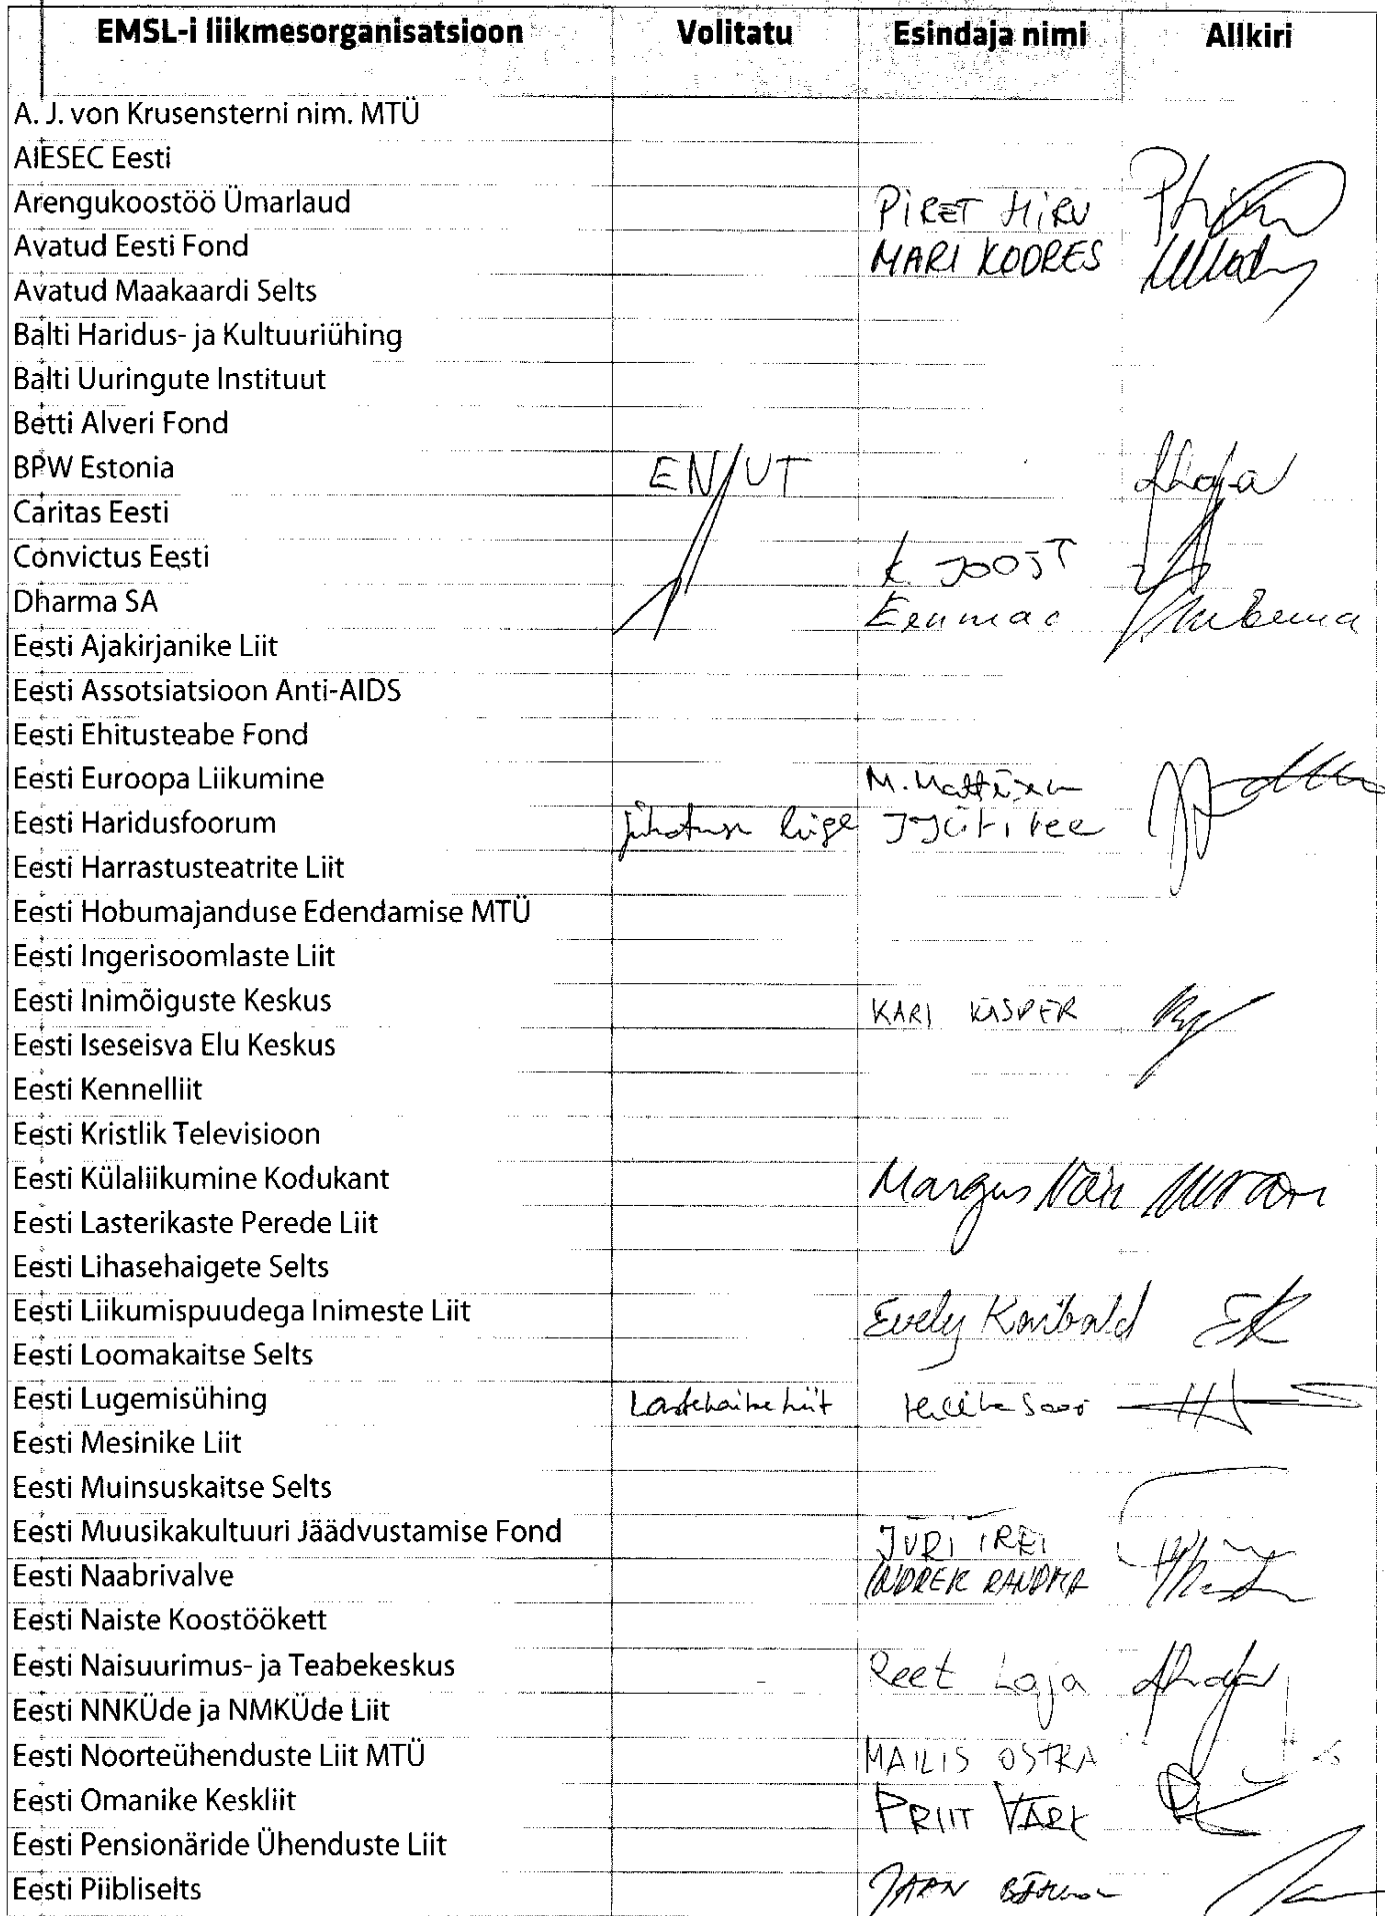 EMSL-i liikmesorganisatsioon Volitatu Esindaja nimi Allkiri
A. J. von Krusensterni nim. MTÜ
AIESEC Eesti
Arengukoostöö Ümarlaud PIRET HIRV
Avatud Eesti Fond MARI KODRES
Avatud Maakaardi Selts
Balti Haridus- ja Kultuuriühing
Balti Uuringute Instituut
Betti Alveri Fond
BPW Estonia ENUT
Caritas Eesti
Convictus Eesti K JOOST
Dharma SA Eenmaa
Eesti Ajakirjanike Liit
Eesti Assotsiatsioon Anti-AIDS
Eesti Ehitusteabe Fond
Eesti Euroopa Liikumine M.
Eesti Haridusfoorum juhatuse liige
Eesti Harrastusteatrite Liit
Eesti Hobumajanduse Edendamise MTÜ
Eesti Ingerisoomlaste Liit
Eesti Inimõiguste Keskus KARI KÄSPER
Eesti Iseseisva Elu Keskus
Eesti Kennelliit
Eesti Kristlik Televisioon
Eesti Külaliikumine Kodukant Margus
Eesti Lasterikaste Perede Liit
Eesti Lihasehaigete Selts
Eesti Liikumispuudega Inimeste Liit Evely
Eesti Loomakaitse Selts
Eesti Lugemisühing Lastekaitse Liit
Eesti Mesinike Liit
Eesti Muinsuskaitse Selts
Eesti Muusikakultuuri Jäädvustamise Fond JÜRI
Eesti Naabrivalve INDREK
Eesti Naiste Koostöökett
Eesti Naisuurimus- ja Teabekeskus Reet Laja
Eesti NNKÜde ja NMKÜde Liit
Eesti Noorteühenduste Liit MTÜ MAILIS OSTRA
Eesti Omanike Keskliit PRIIT VÄRK
Eesti Pensionäride Ühenduste Liit
Eesti Piibliselts JAAN